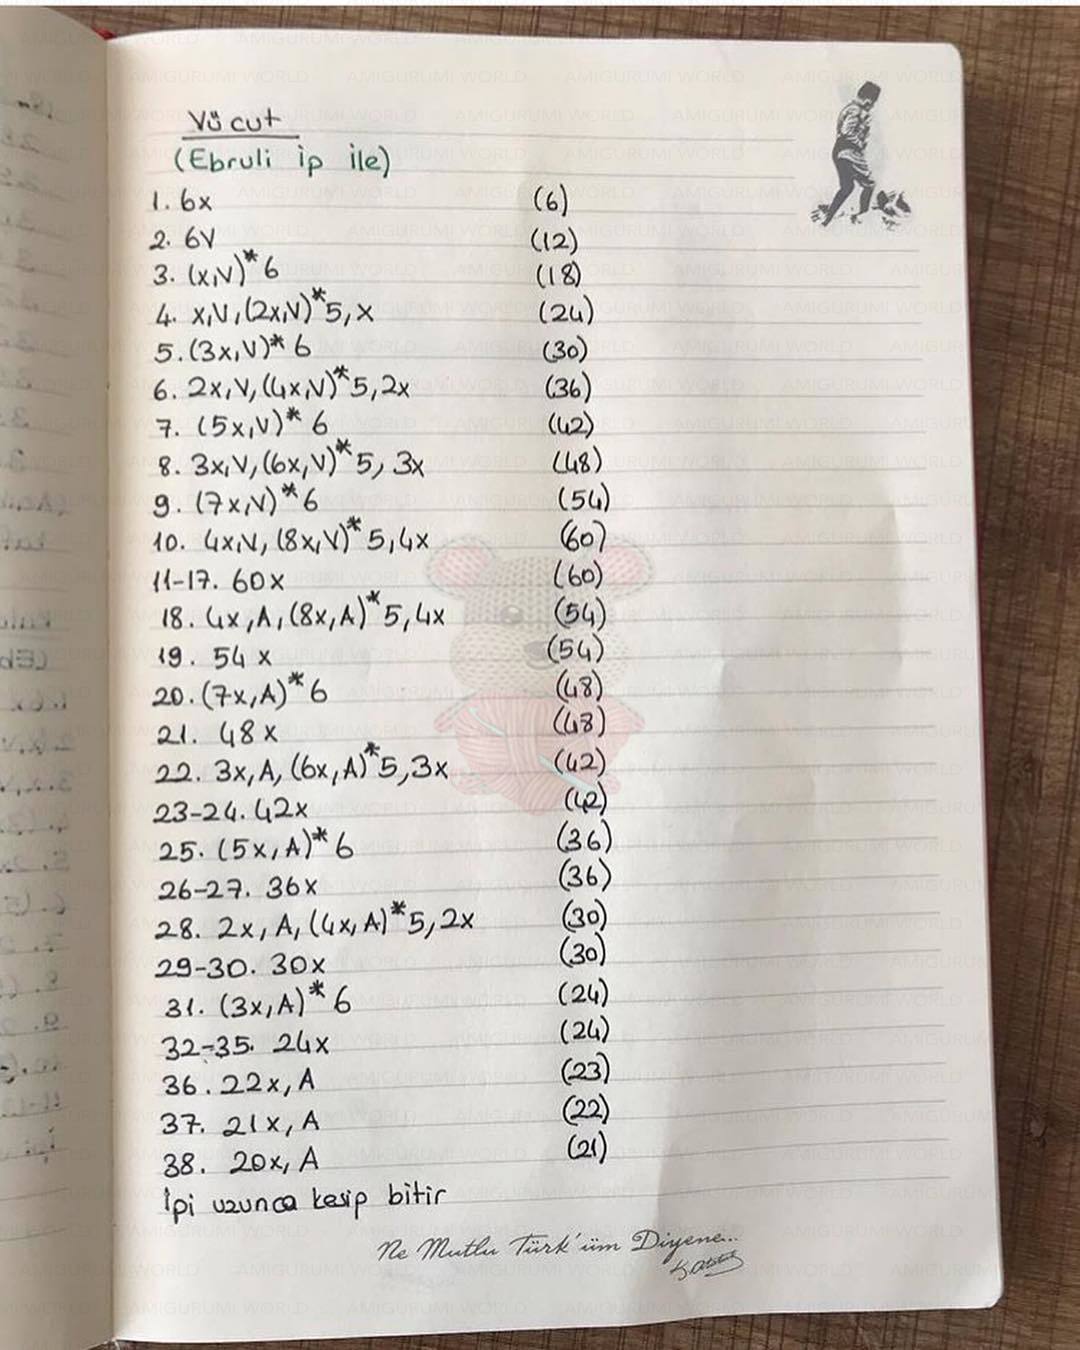 Vücut
(Ebruli ip ile)
1. 6x (6)
2. 6V (12)
3. (x,V)*6 (18)
4. x,V,(2x,V)*5,x (24)
5. (3x,V)*6 (30)
6. 2x,V,(4x,V)*5,2x (36)
7. (5x,V)*6 (42)
8. 3x,V,(6x,V)*5,3x (48)
9. (7x,V)*6 (54)
10. 4x,V,(8x,V)*5,4x (60)
11-17. 60x (60)
18. 4x,A,(8x,A)*5,4x (54)
19. 54x (54)
20. (7x,A)*6 (48)
21. 48x (48)
22. 3x,A,(6x,A)*5,3x (42)
23-24. 42x (42)
25. (5x,A)*6 (36)
26-27. 36x (36)
28. 2x,A,(4x,A)*5,2x (30)
29-30. 30x (30)
31. (3x,A)*6 (24)
32-35. 24x (24)
36. 22x,A (23)
37. 21x,A (22)
38. 20x,A (21)
İpi uzunca kesip bitir
Ne Mutlu Türk'üm Diyene...
K.Atatürk
AMIGURUMI WORLD